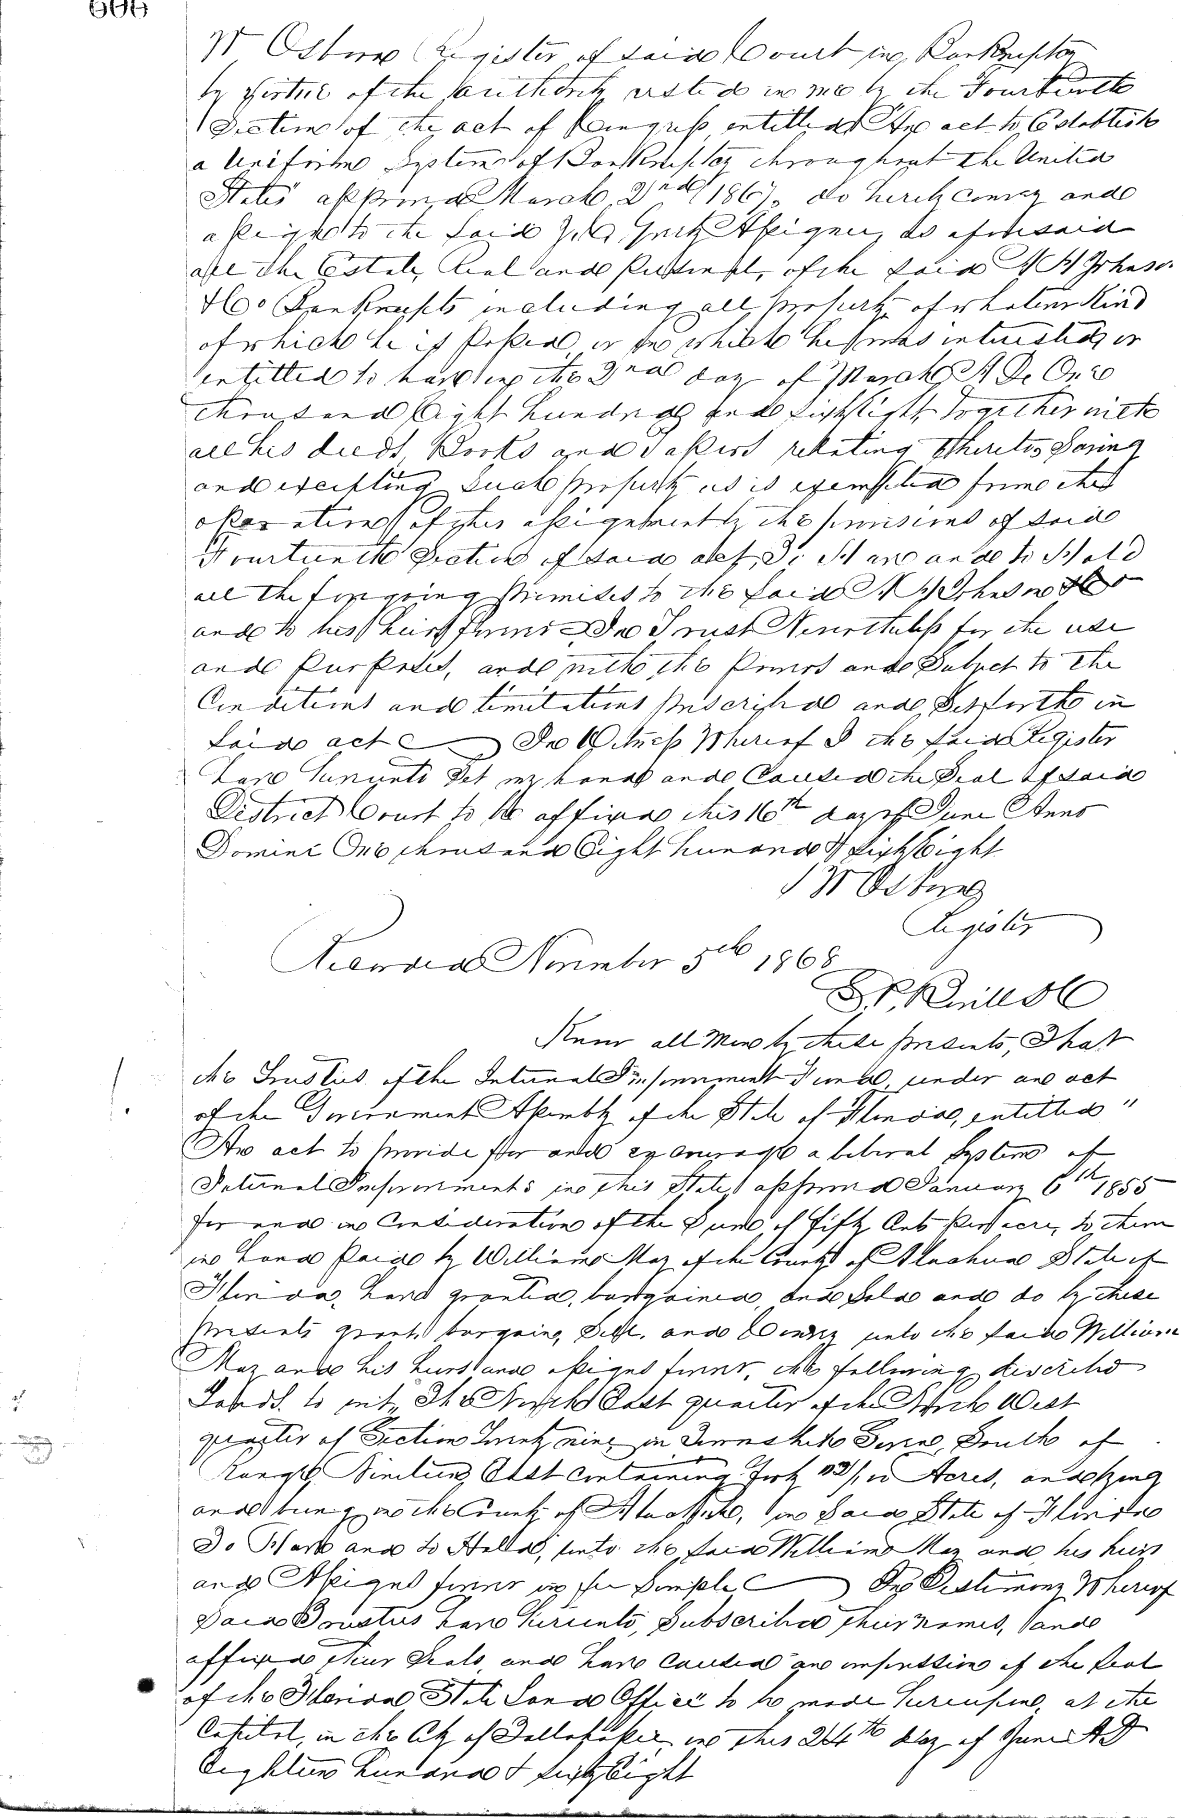 606
W Osborn Register of said Court in Bankruptcy
by virtue of the authority vested in me by the Fourteenth
Section of the act of Congress entitled An act to Establish
a Uniform System of Bankruptcy throughout the United
States" approved March 2nd 1867, do hereby convey and
assign to the said Assignee, as aforesaid
all the Estate, Real and Personal, of the said Johnson
& Co Bankrupts including all property of whatever Kind
of which he is possessed or in which he was interested or
entitled to have on the 2nd day of March A D One
thousand Eight hundred and sixty Eight together with
all his deeds, Books and Papers relating thereto, Saving
and excepting such property as is exempted from the
operation of this assignment by the provisions of said
Fourteenth Section of said act, To Have and to Hold
all the foregoing premises to the said Johnson & Co
and to his heirs forever In Trust Nevertheless for the use
and Purposes, and with the Powers and Subject to the
Conditions and limitations prescribed and Set forth in
said act In Witness Whereof I the said Register
have hereunto Set my hand and Caused the Seal of said
District Court to be affixed this 16th day of June Anno
Domini One thousand Eight hundred & sixty Eight
W Osborn
Register
Recorded November 5th 1868
Know all Men by these presents, That
the Trustees of the Internal Improvement Fund, under an act
of the Government Assembly of the State of Florida, entitled "
An act to provide for and encourage a liberal System of
Internal Improvements in this State, approved January 6th 1855
for and in Consideration of the Sum of fifty Cents per acre, to them
in hand Paid by William May of the County of Alachua State of
Florida, have granted, bargained, and Sold and do by these
presents grant, bargain, Sell, and Convey unto the said William
May and his heirs and assigns forever, the following described
Lands, to wit, The North East quarter of the North West
quarter of Section Twenty nine in Township Seven, South of
Range Nineteen East containing forty /100 Acres, and lying
and being in the County of Alachua, in said State of Florida
To Have and to Hold, unto the said William May and his heirs
and Assigns forever in fee Simple In Testimony Whereof
Said Trustees have hereunto, Subscribed their names, and
affixed their Seals, and have caused an impression of the Seal
of the Florida State Land Office to be made hereupon, at the
Capitol, in the City of Tallahassee, on this 24th day of June A D
Eighteen hundred & sixty Eight